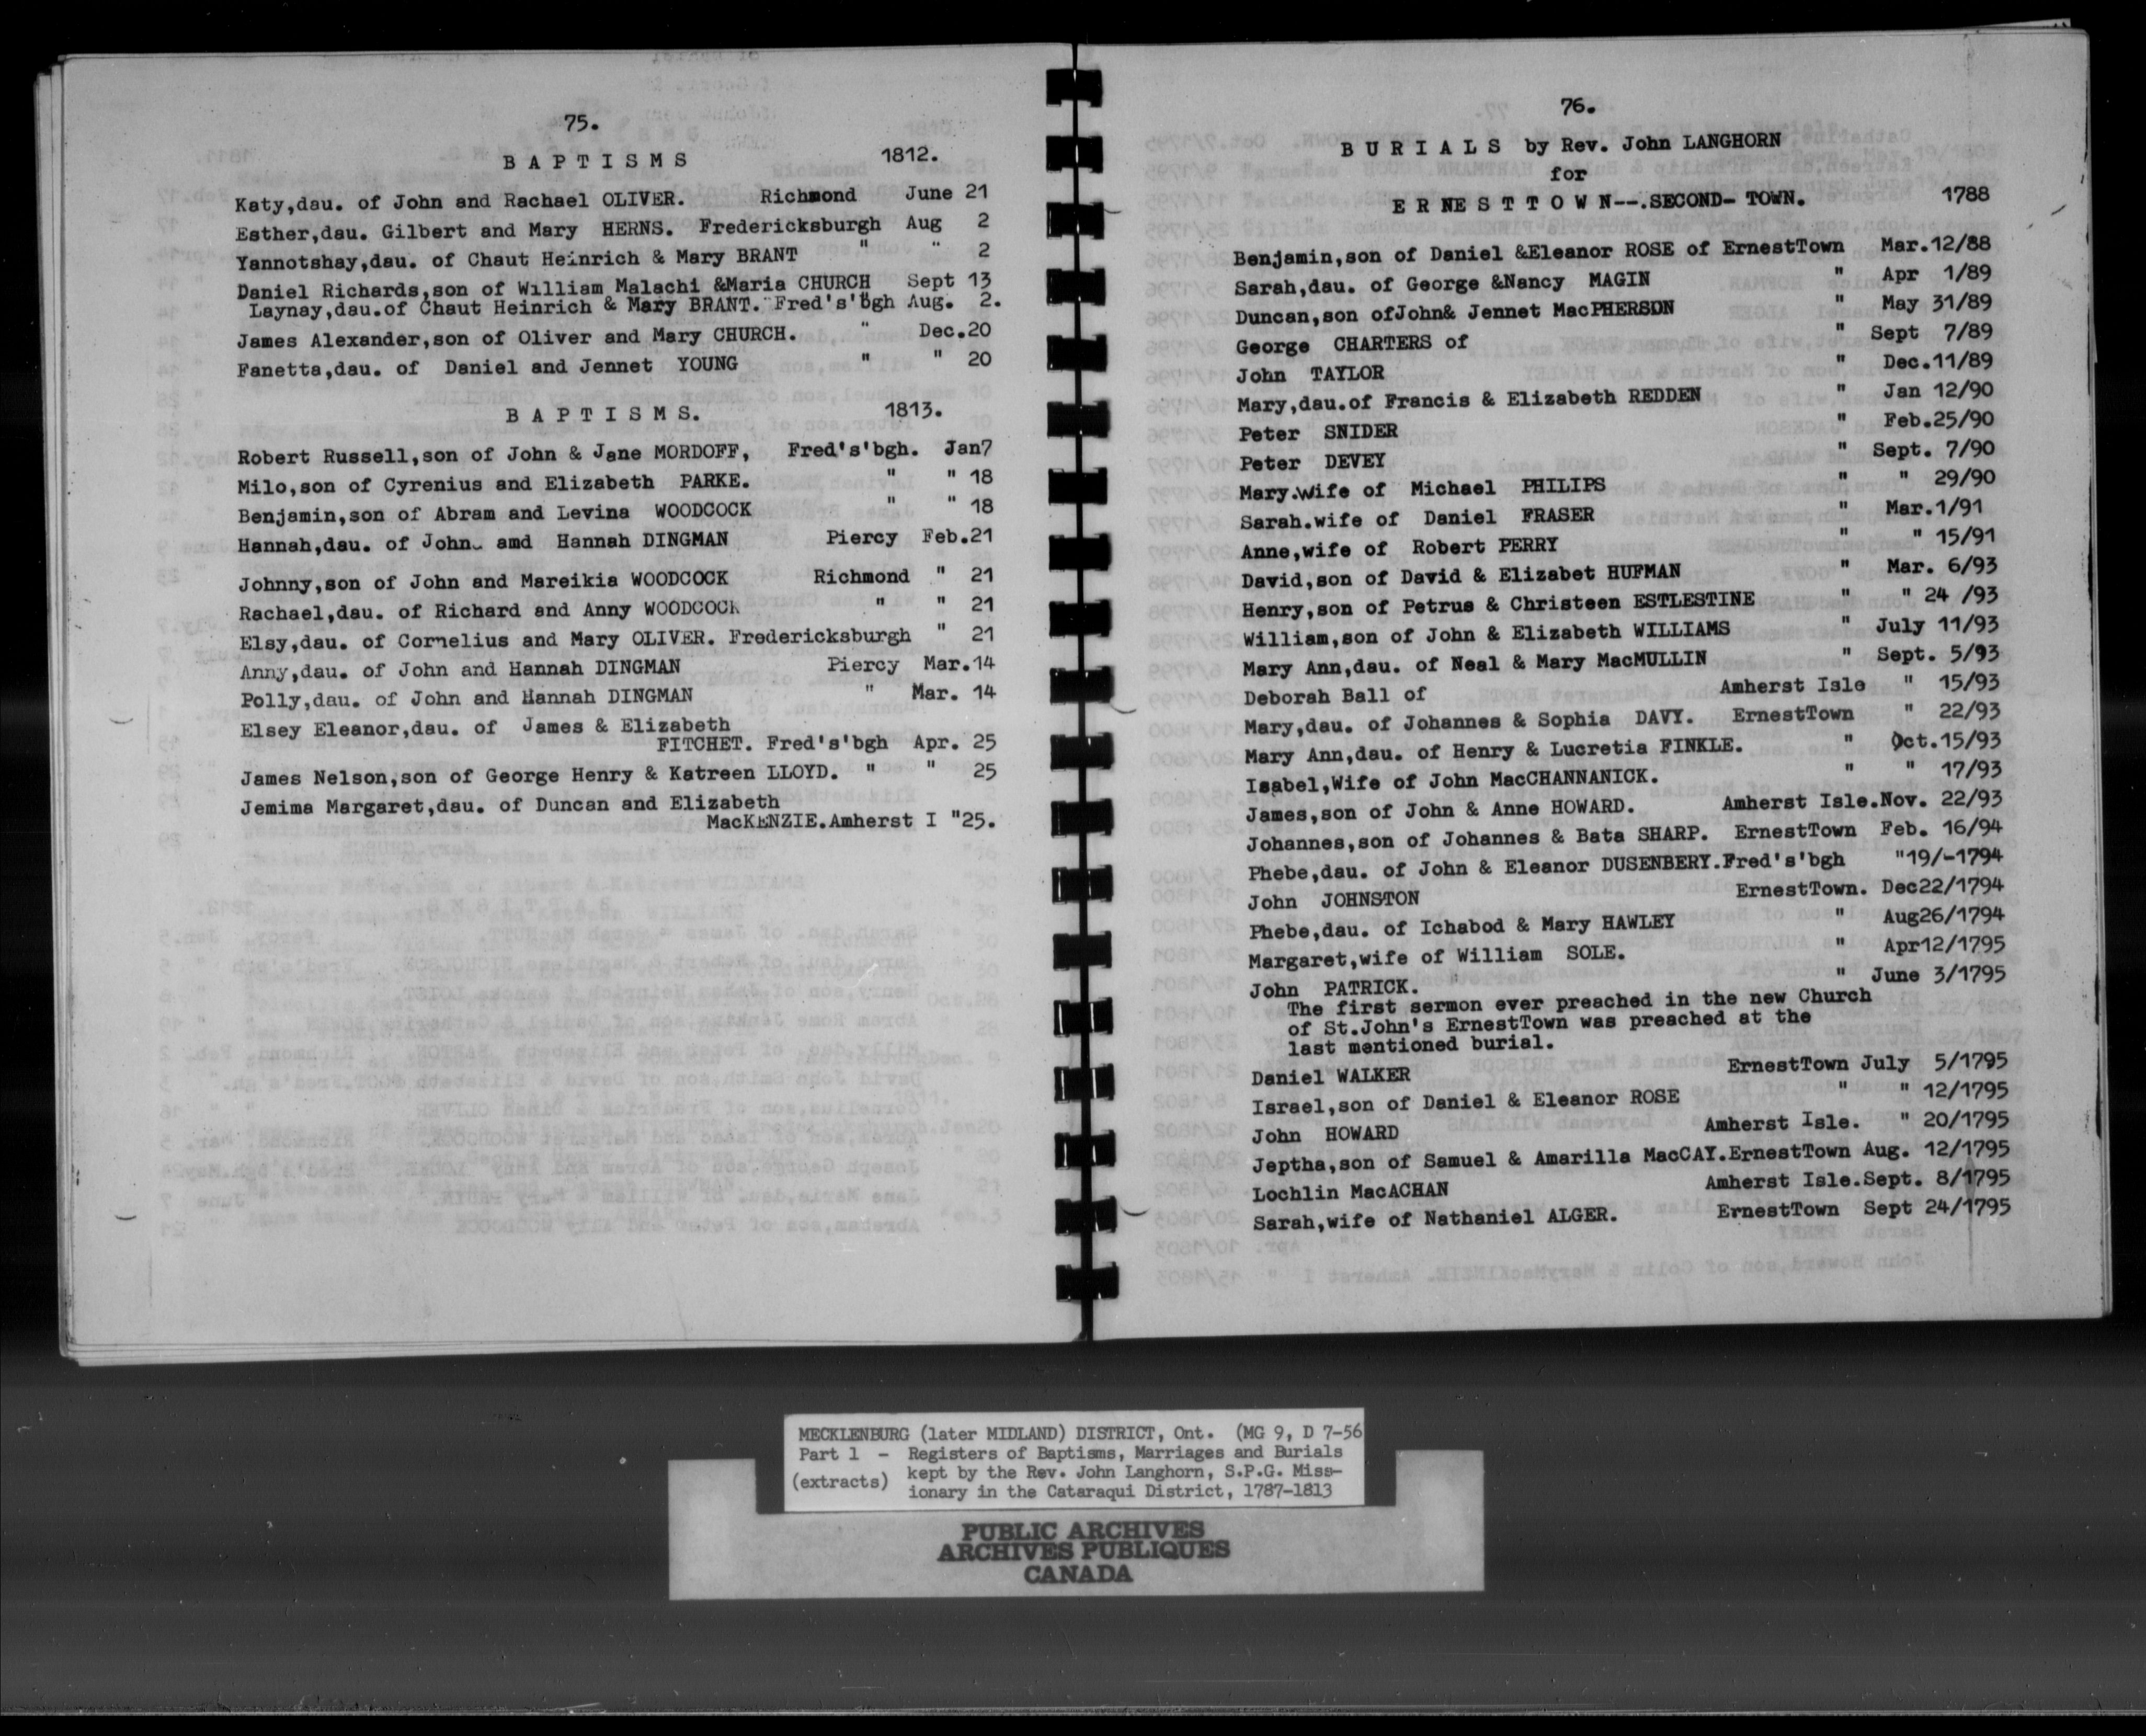 75.
B A P T I S M S 1812.
Katy,dau. of John and Rachael OLIVER. Richmond June 21
Esther,dau. Gilbert and Mary HERNS. Fredericksburgh Aug 2
Yannotshay,dau. of Chaut Heinrich & Mary BRANT " " 2
Daniel Richards,son of William Malachi &Maria CHURCH " Sept 13
Laynay,dau.of Chaut Heinrich & Mary BRANT. Fred's'bgh Aug. 2.
James Alexander,son of Oliver and Mary CHURCH. " Dec.20
Fanetta,dau. of Daniel and Jennet YOUNG " " 20
B A P T I S M S. 1813.
Robert Russell,son of John & Jane MORDOFF, Fred's'bgh. Jan7
Milo,son of Cyrenius and Elizabeth PARKE. " " 18
Benjamin,son of Abram and Levina WOODCOCK " " 18
Hannah,dau. of John. amd Hannah DINGMAN Piercy Feb.21
Johnny,son of John and Mareikia WOODCOCK Richmond " 21
Rachael,dau. of Richard and Anny WOODCOCK " " 21
Elsy,dau. of Cornelius and Mary OLIVER. Fredericksburgh " 21
Anny,dau. of John and Hannah DINGMAN Piercy Mar.14
Polly,dau. of John and Hannah DINGMAN " Mar. 14
Elsey Eleanor,dau. of James & Elizabeth
FITCHET. Fred's'bgh Apr. 25
James Nelson,son of George Henry & Katreen LLOYD. " " 25
Jemima Margaret,dau. of Duncan and Elizabeth
MacKENZIE.Amherst I "25.
76.
B U R I A L S by Rev. John LANGHORN
for
E R NE S T T O W N--.SECOND- TOWN. 1788
Benjamin,son of Daniel &Eleanor ROSE of ErnestTown Mar.12/88
Sarah,dau. of George &Nancy MAGIN " Apr 1/89
Duncan,son ofJohn& Jennet MacPHERSON " May 31/89
George CHARTERS of " Sept 7/89
John TAYLOR " Dec.11/89
Mary,dau.of Francis & Elizabeth REDDEN " Jan 12/90
Peter SNIDER " Feb.25/90
Peter DEVEY " Sept. 7/90
Mary.wife of Michael PHILIPS " " 29/90
Sarah.wife of Daniel FRASER " Mar.1/91
Anne,wife of Robert PERRY " " 15/91
David,son of David & Elizabet HUFMAN " Mar. 6/93
Henry,son of Petrus & Christeen ESTLESTINE " " 24 /93
William,son of John & Elizabeth WILLIAMS " July 11/93
Mary Ann,dau. of Neal & Mary MacMULLIN " Sept. 5/93
Deborah Ball of Amherst Isle " 15/93
Mary,dau. of Johannes & Sophia DAVY. ErnestTown " 22/93
Mary Ann,dau. of Henry & Lucretia FINKLE. " Oct.15/93
Isabel,Wife of John MacCHANNANICK. " " 17/93
James,son of John & Anne HOWARD. Amherst Isle.Nov. 22/93
Johannes,son of Johannes & Bata SHARP. ErnestTown Feb. 16/94
Phebe,dau. of John & Eleanor DUSENBERY.Fred's'bgh "19/-1794
John JOHNSTON ErnestTown. Dec22/1794
Phebe,dau. of Ichabod & Mary HAWLEY " Aug26/1794
Margaret,wife of William SOLE. " Apr12/1795
John PATRICK. " June 3/1795
The first sermon ever preached in the new Church
of St.John's ErnestTown was preached at the
last mentioned burial.
Daniel WALKER ErnestTown July 5/1795
Israel,son of Daniel & Eleanor ROSE " " 12/1795
John HOWARD Amherst Isle. " 20/1795
Jeptha,son of Samuel & Amarilla MacCAY.ErnestTown Aug. 12/1795
Lochlin MacACHAN Amherst Isle.Sept. 8/1795
Sarah,wife of Nathaniel ALGER. ErnestTown Sept 24/1795
MECKLENBURG (later MIDLAND) DISTRICT, Ont. (MG 9, D 7-56
Part 1 - Registers of Baptisms, Marriages and Burials
(extracts) kept by the Rev. John Langhorn, S.P.G. Miss-
ionary in the Cataraqui District, 1787-1813
PUBLIC ARCHIVES
ARCHIVES PUBLIQUES
CANADA